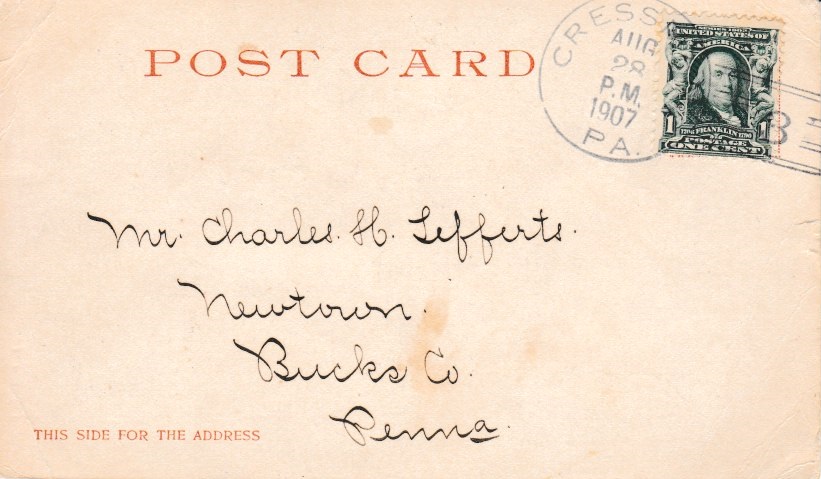 POST CARD
CRESS
AUG
28
P.M.
1907
PA.
SERIES 1902
UNITED STATES OF
AMERICA
1706 FRANKLIN 1790
POSTAGE
1 ONE CENT 1
3
Mr. Charles. H. Lefferts.
Newtown.
Bucks Co.
Penna.
THIS SIDE FOR THE ADDRESS